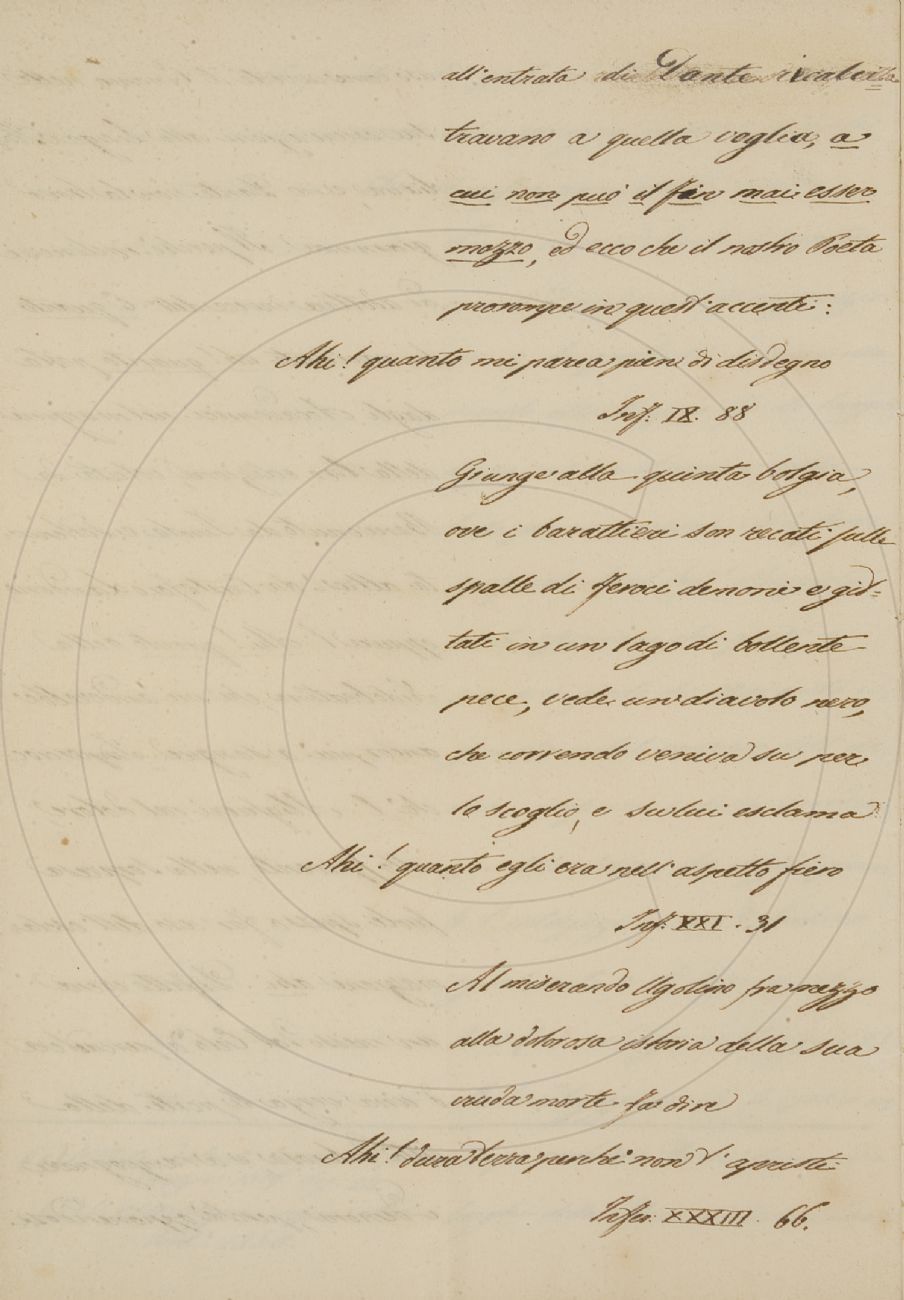 all'entrata di Dante ricalci
travano a quella voglia, a
cui non può il fin mai esser
mozzo, ed ecco che il nostro Poeta
prorompe in questi accenti:
Ahi! quanto mi parea pien di disdegno
Inf. IX. 88
Giunge alla quinta bolgia,
ove i barattieri son recati sulle
spalle di feroci demoni e git-
tati in un lago di bollente
pece, vede un diavolo nero,
che correndo veniva su per
lo scoglio, e su lui esclama
Ahi! quanto egli era nell'aspetto fiero
Inf. XXI. 31
Al miserando Ugolino fra mezzo
alla dolorosa istoria della sua
cruda morte fa dire
Ahi! dura terra perchè non t'apristi
Infer. XXXIII. 66.